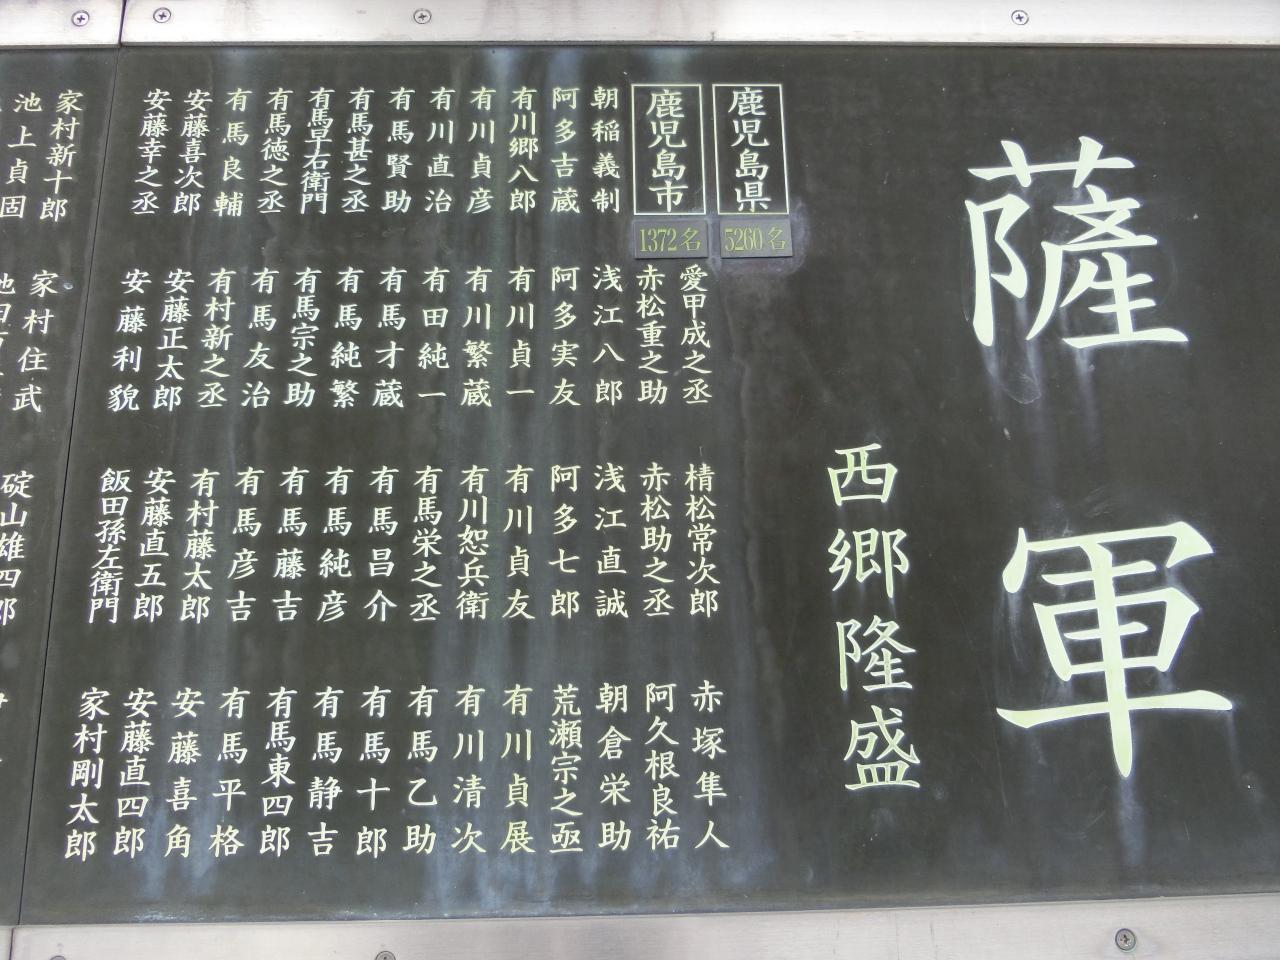 薩軍
西郷隆盛
鹿児島県
5260名
鹿児島市
1372名
愛甲成之丞
棈松常次郎
赤塚隼人
赤松重之助
赤松助之丞
阿久根良祐
朝稲義制
浅江八郎
浅江直誠
朝倉栄助
阿多吉蔵
阿多実友
阿多七郎
荒瀬宗之亟
有川郷八郎
有川貞一
有川貞友
有川貞展
有川貞彦
有川繁蔵
有川恕兵衛
有川清次
有川直治
有田純一
有馬栄之丞
有馬乙助
有馬賢助
有馬才蔵
有馬昌介
有馬十郎
有馬甚之丞
有馬純繁
有馬純彦
有馬静吉
有馬早右衛門
有馬宗之助
有馬藤吉
有馬東四郎
有馬徳之丞
有馬友治
有馬彦吉
有馬平格
有馬良輔
有村新之丞
有村藤太郎
安藤喜角
安藤喜次郎
安藤正太郎
安藤直五郎
安藤直四郎
安藤幸之丞
安藤利貌
飯田孫左衛門
家村剛太郎
家村新十郎
家村住武
碇山雄四郎
池上貞固